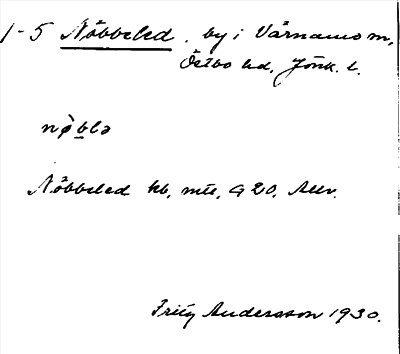 1-5 Nöbbeled . by i Värnamo m,
Östbo hd, Jönk. l.
nø̀blə
Nöbbeled hb, mtl, G 20,
Fritz Andersson 1930.